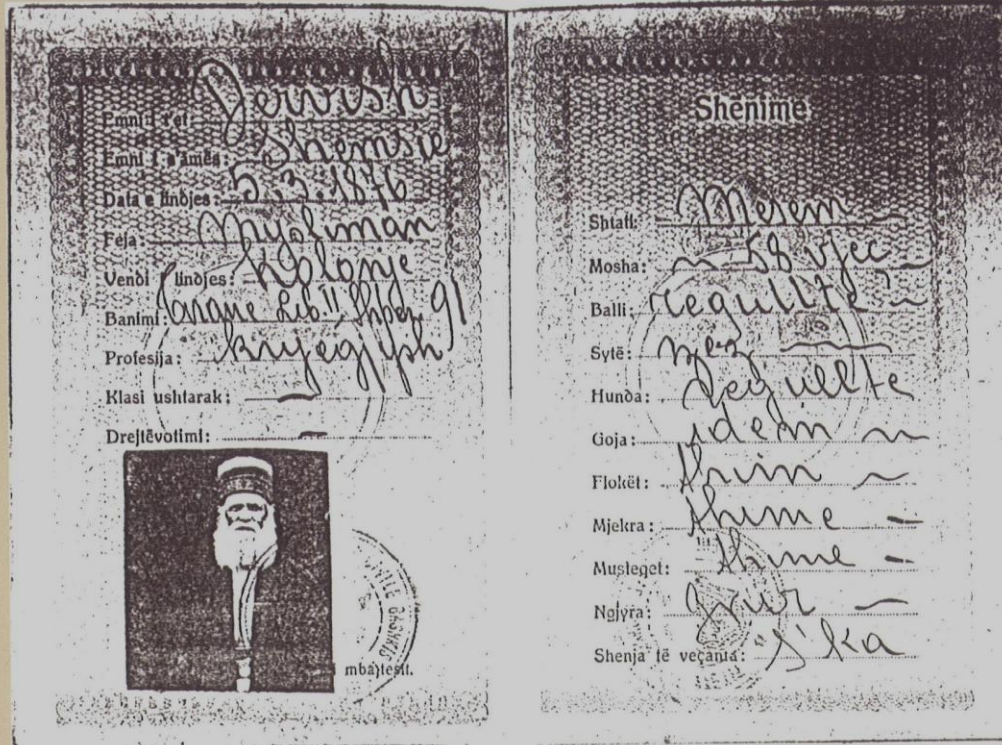 Emni i t'et: Dervish
Emni i s'ames: Shemsie
Data e lindjes: 5.3.1876
Feja: Mysliman
Vendi i lindjes: Kolonje
Banimi Tirane Lib. 91
Profesija: Kryegjysh
Klasi ushtarak: —
Drejtëvotimi: —
mbajtesit.
Shënime
Shtati: Mesem —
Mosha: 58 vjec —
Balli: rregullte
Sytë:
Hunda: Regullte
Goja: idem
Flokët: thim
Mjekra: thime —
Musteqet: thime —
Ngjyra: grur —
Shenja të veçanta: s'ka